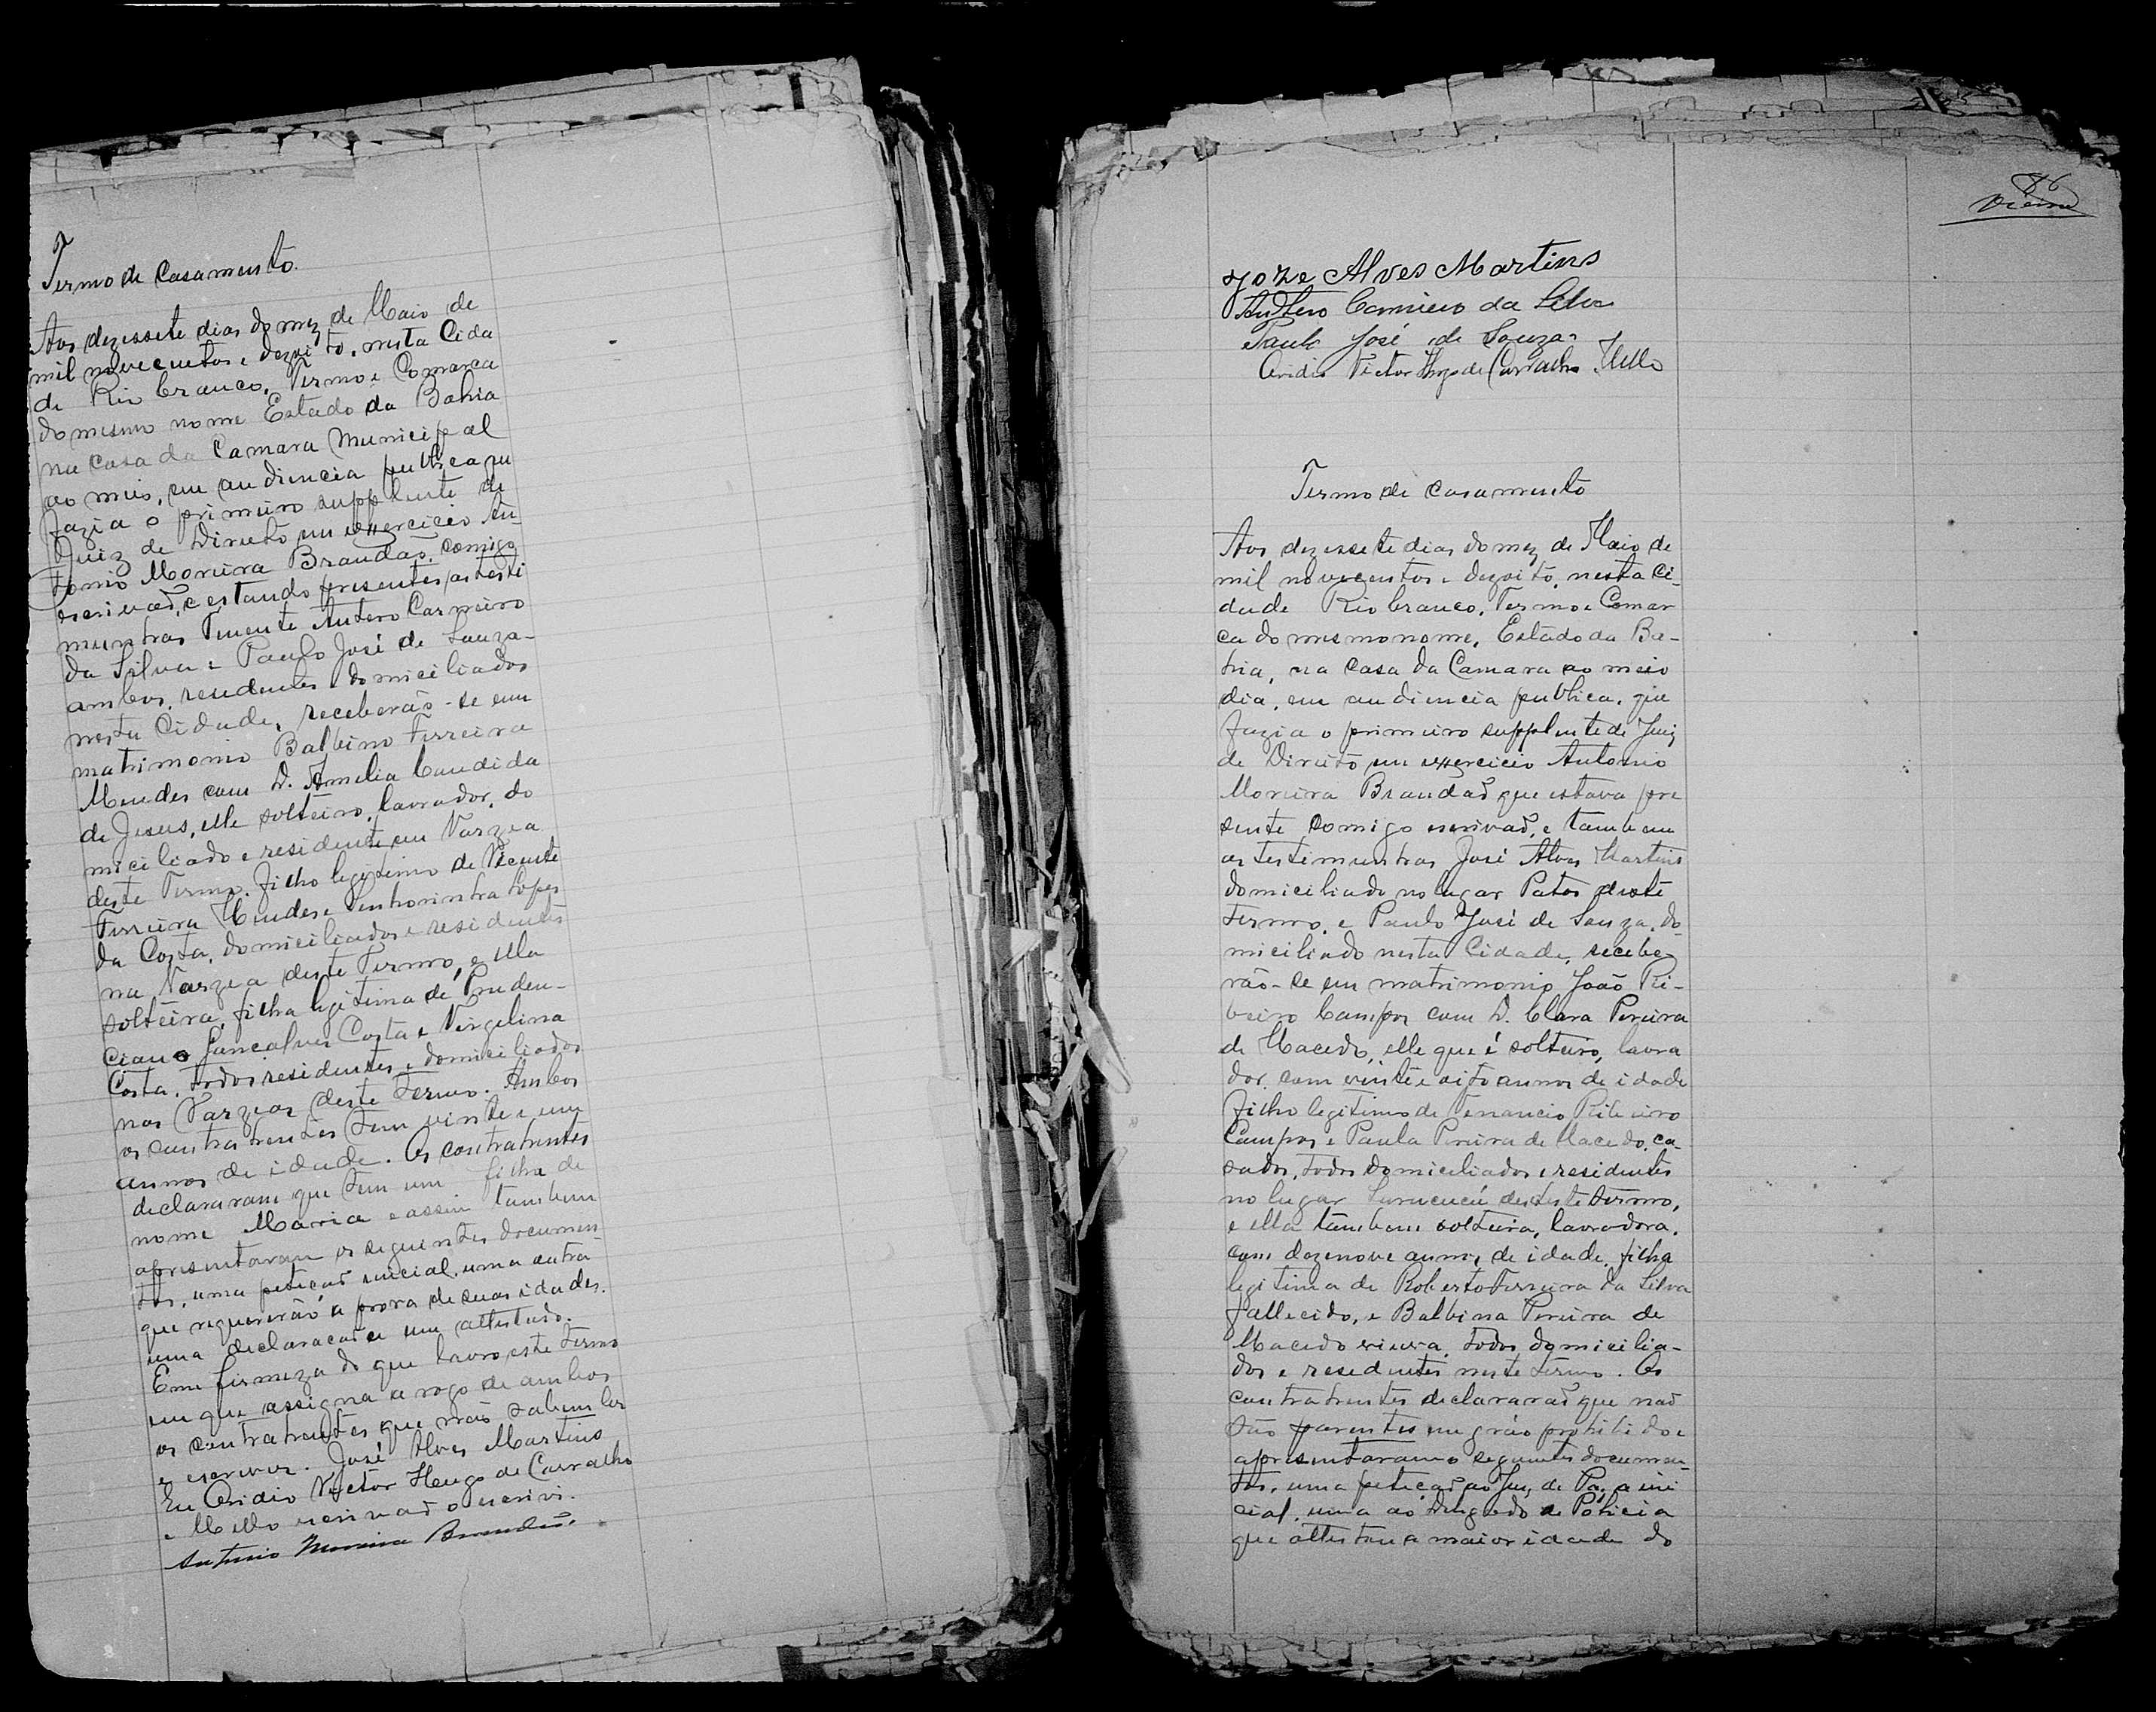 Termo de Casamento.
Aos dezessete dias do mez de Maio de
mil novecentos e dezoito, nesta Cida
de Rio branco, Termo e Comarca
do mesmo nome Estado da Bahia
na Casa da Camara Municipal
ao meio, em audiencia publica que
fazia o primeiro supplente de
Juiz de Direito em exercicio An-
tonio Moreira Brandão, comigo
escrivão, e estando presentes as testi
munhas Tenente Antero Carneiro
da Silva e Paulo José de Souza-
ambos, residentes e domiciliados
nesta Cidade, receberão-se em
matrimonio Balbino Ferreira
Mendes com D. Amelia Candida
de Jesus, elle solteiro, lavrador, do
miciliado e residente em Varzea
deste Termo, filho legitimo de Vicente
Ferreira Mendes e Senhorinha Lopes
da Costa, domiciliados e residentes
na Varzea deste Termo, e ella
solteira, filha legitima de Pruden-
ciano Goncalves Costa e Virgelina
Costa, todos residentes e domiciliados
nas Varzeas deste Termo. Ambos
os contrahentes tem vinte e um
annos de idade. Os contrahentes
declararam que tem um filha de
nome Maria e assim tambem
apresentaram os seguintes documen
tos, uma peticão inicial, uma outra
que requererão a prova de suas idades.
uma declaracão e um attestado.
Em firmeza do que lavro este termo
em que assigna a rogo de ambos
os contrahentes que não sabem ler
e escrever. José Alves Martins
Eu Ovidio Victor Hugo de Carvalho
e Mello escrivão o escrevi.
Antonio Moreira Brandão.
86
Vieira
Joze Alves Martins
Antero Carneiro da Silva
Paulo José de Souza
Ovidio Victor Hugo de Carvalho Mello
Termo de Casamento
Aos dezessete dias do mez de Maio de
mil novecentos e dezoito, nesta Ci-
dade Rio branco, Termo e Comar
ca do mesmo nome, Estado da Ba-
hia, na Casa da Camara ao meio
dia, em audiencia publica, que
fazia o primeiro supplente de Juiz
de Direito em exercicio Antonio
Moreira Brandão que estava pre
sente comigo escrivão, e tambem
as testimunhas José Alves Martins
domiciliado no lugar Patos deste
termo, e Paulo José de Souza, do
miciliado nesta Cidade, recebe-
rão-se em matrimonio João Ri-
beiro Campos com D. Clara Pereira
de Macedo, elle que é solteiro, lavra
dor, com vinte e oito annos de idade
filho legitimo de Venancio Ribeiro
Campos e Paula Pereira de Macedo, ca-
sados, todos domiciliados e residentes
no lugar Surucucú deste termo,
e ella tambem solteira, lavradora,
com dezenove annos de idade, filha
legitima de Roberto Ferreira da Silva
fallecido, e Balbina Pereira de
Macedo viuva, todos domicilia-
dos e residentes neste termo. Os
contrahentes declararão que não
são parentes em gráo prohibido e
apresentaram o seguintes documen-
tos, uma peticão ao Juiz de Paz a ini
cial, uma ao Delegado de Policia
que attestou a maior idade do